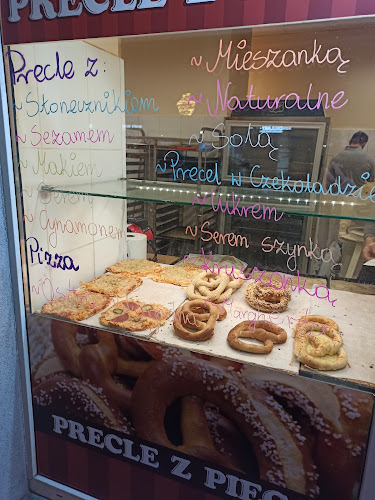 PRECLE Z
Precle z:
~ Słonecznikiem
~ Sezamem
~ Makiem
~ Serem
~ Cynamonem
Pizza
~ Mieszanką
~ Naturalne
~ Solą
~ Precel w Czekoladzie
~ Cukrem
~ Serem szynką
PRECLE Z PIEC